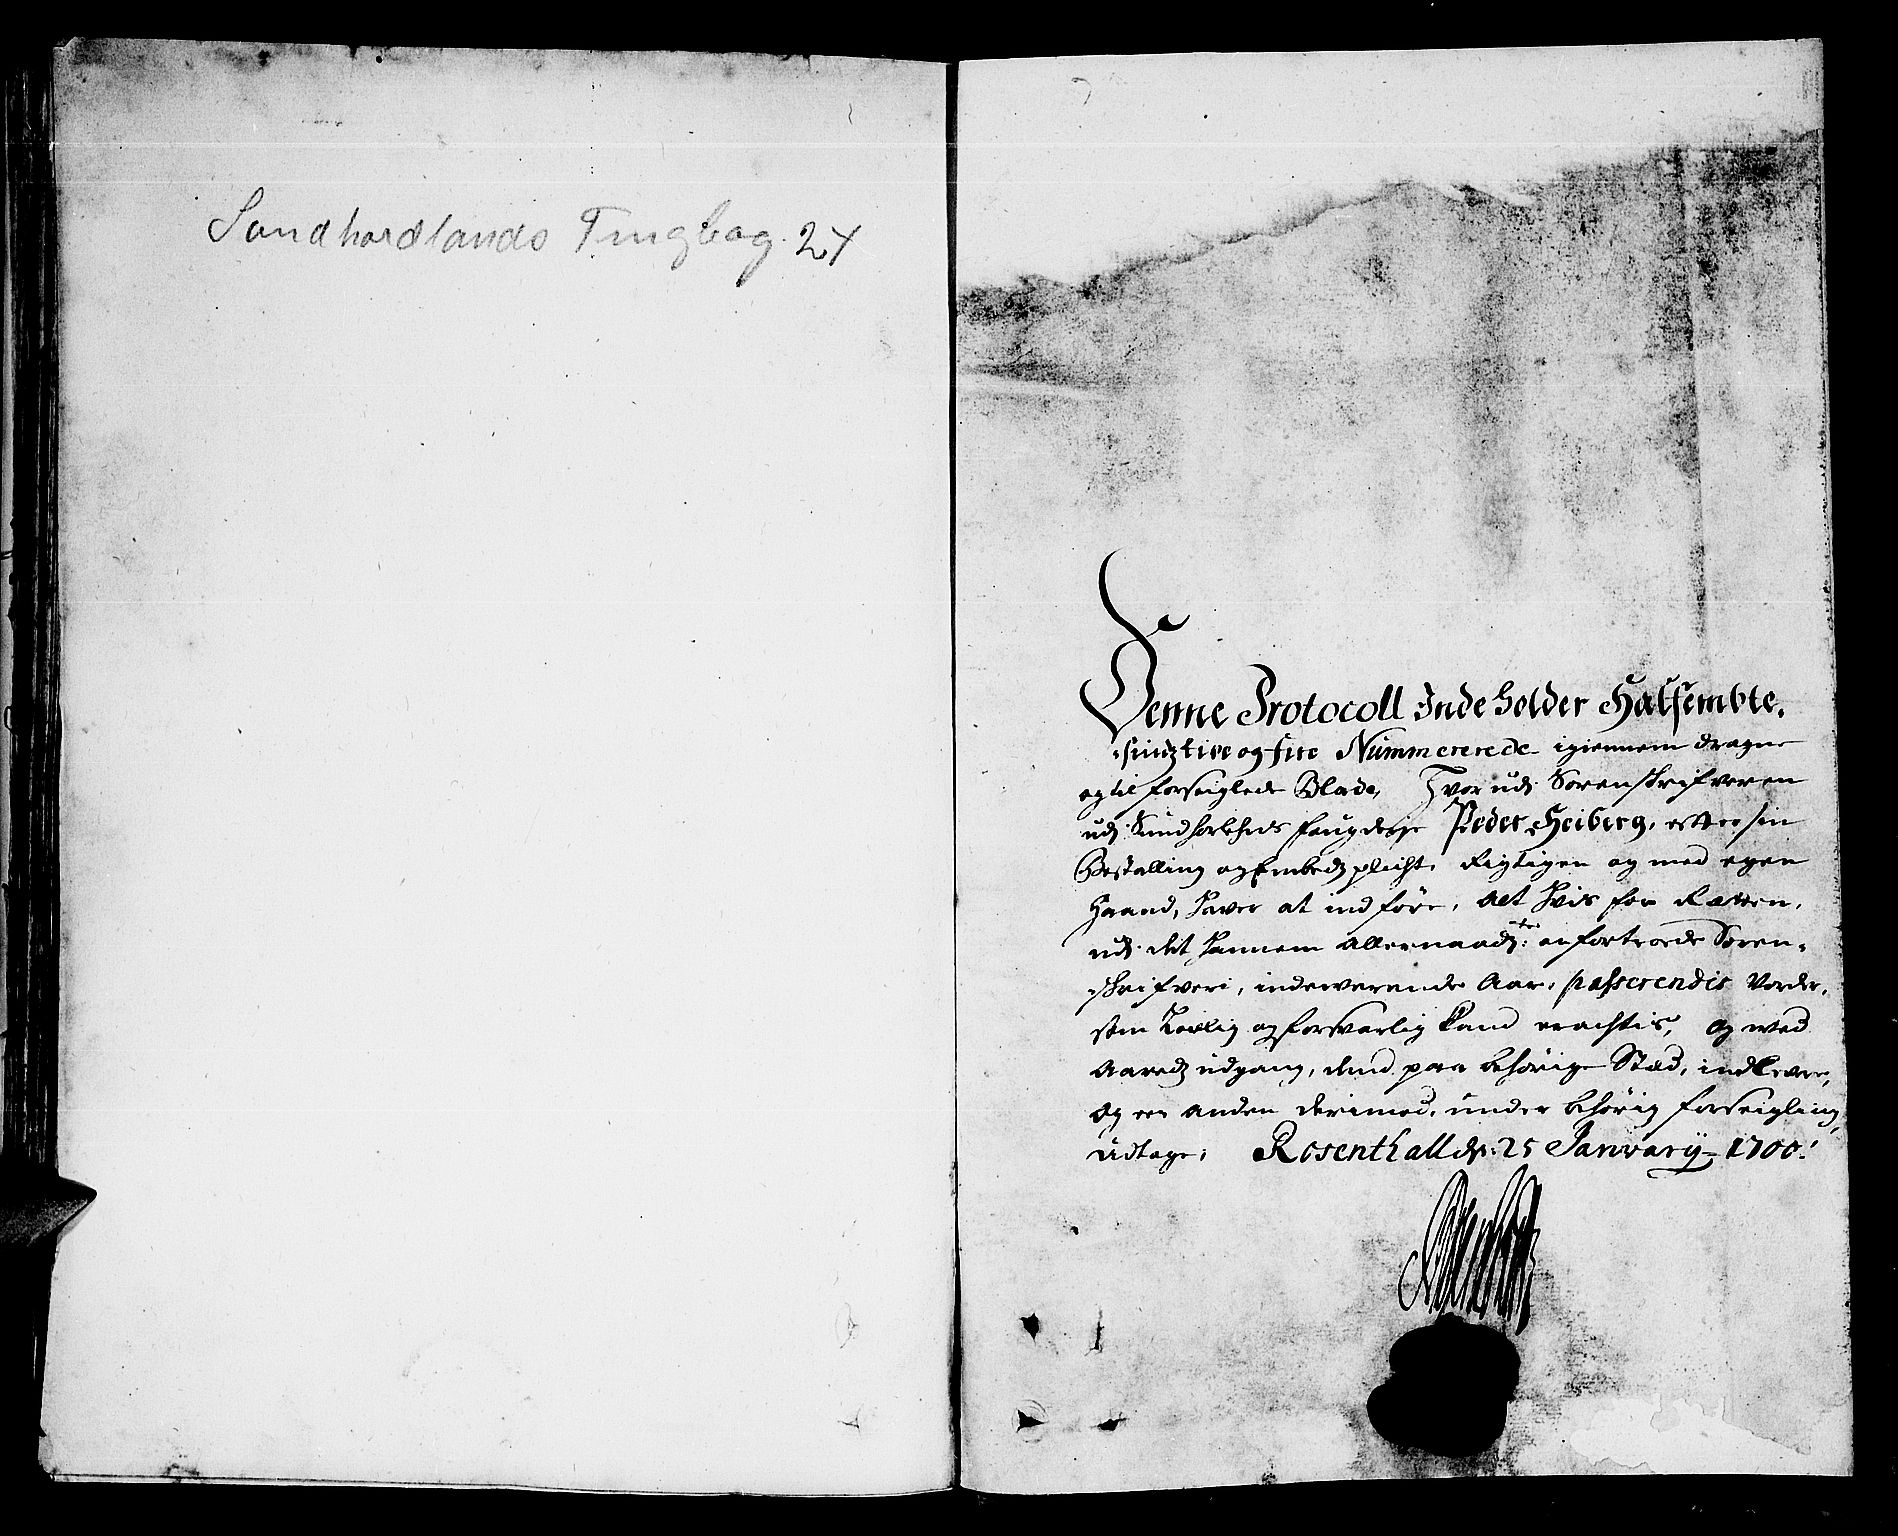 Sundhordlands Tingbog. 24
Denne Protocoll Indeholder Halfsembte.
-sindztive og fire Nummererede igiennem dragne
og til forseiglede Blade, Hvor udj Sorenskrifveren
udj Sundhorlehns fougderje Peder Heiberg, efter sin
Bestalling og Embedz plicht, Rigtigen og med egen
Haand, haver at indføre, alt hvis for Retten,
udj det hannem allernaadz:te anfortroede Soren-
-skrifveri, indeværende Aar, passerendis vorder,
som lovlig og forsvarlig kand eractis, og med
Aaredz udgang, dend paa behörige Stæd, indlevere,
og een anden derimod, under behörig forseigling,
udtage; Rosenthall dn: 25 Janvarij 1700.